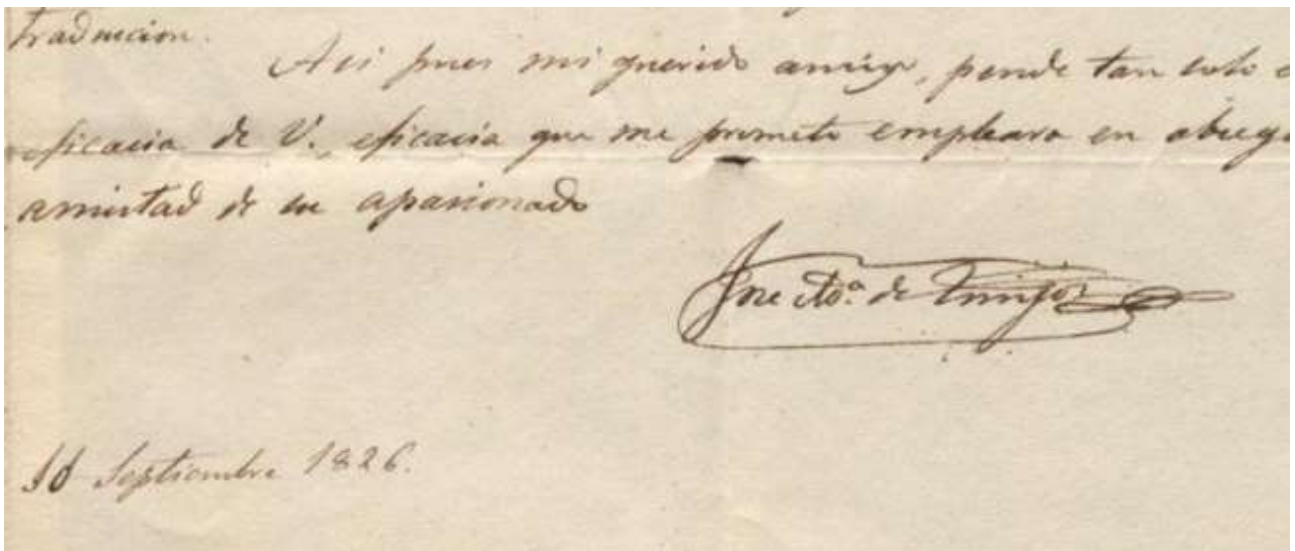 traduccion.
Asi pues mi querido amigo, pende tan solo
eficacia de V., eficacia que me prometo empleara en
amistad de su apasionado
Jose de
Septiembre 1826.